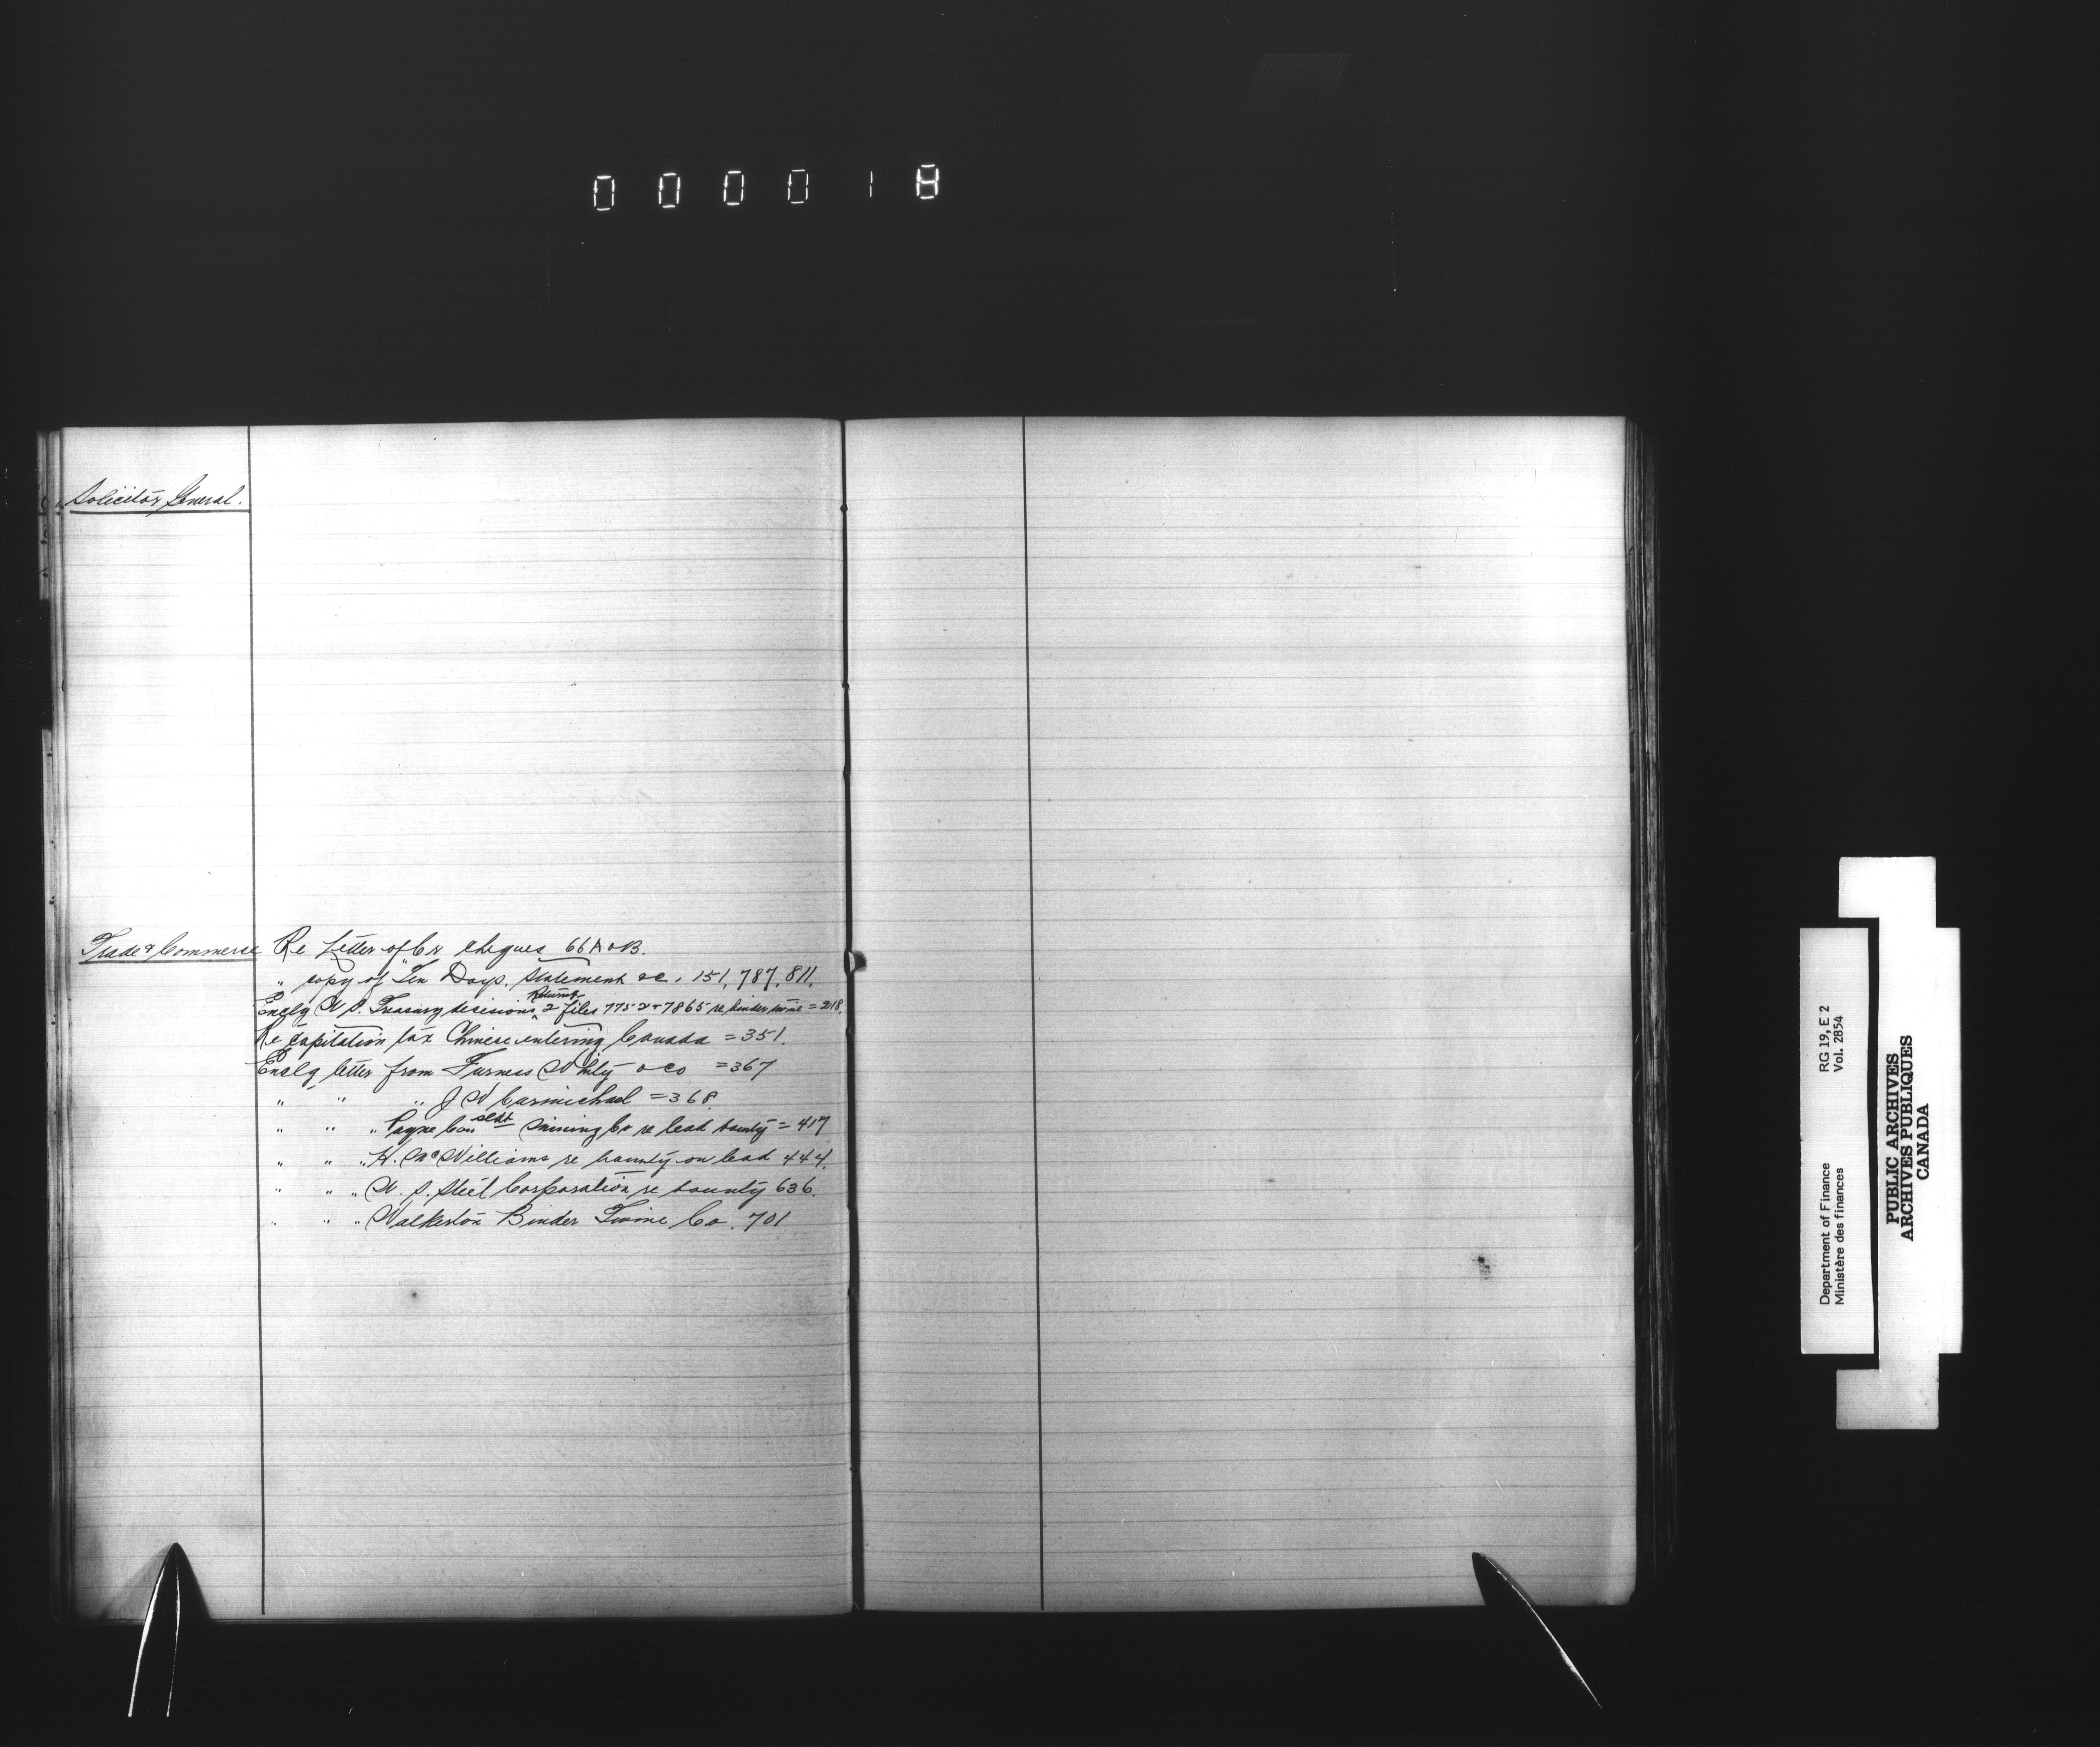 000018
Solicitor General.
Trade & Commerce Re Letter of Cr cheques 66A & B.
" copy of "Ten Days. Statement &c. 151, 787, 811.
Enclg U.S. Treasury decisions Returng 2 files 775-2 & 7865 re binder twine = 218.
Re Capitation tax Chinese entering Canada = 351.
Enclg letter from Furness Withy & Co = 367
" " " J W Carmichael = 368
" " " Payne Consoldt Mining Co re lead bounty = 417
" " " H. McWilliams re bounty on lead 444.
" " " U. S. Steel Corporation re bounty 636.
" " " Walkerton Binder Twine Co. 701
RG 19, E 2
Vol. 2854
Department of Finance
Ministère des finances
PUBLIC ARCHIVES
ARCHIVES PUBLIQUES
CANADA